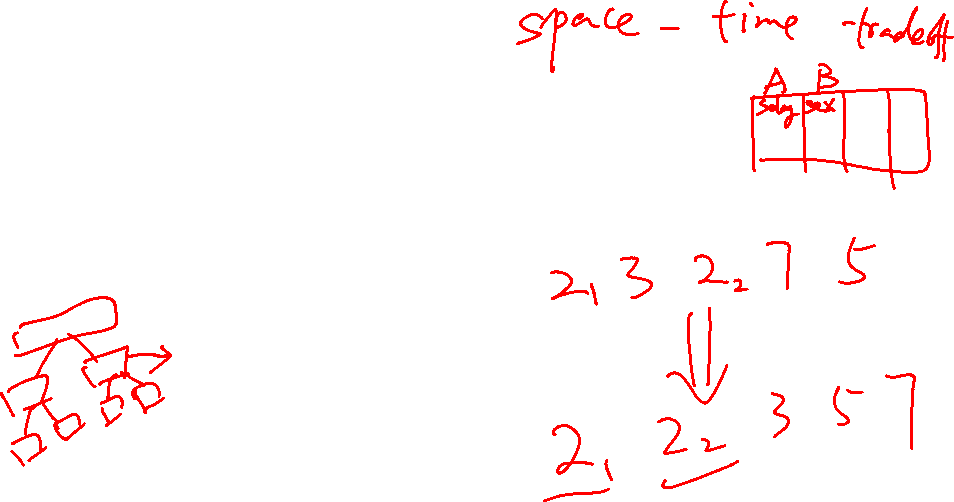 space - time - tradeoff
A B
salary sex
2₁ 3 2₂ 7 5
2₁ 2₂ 3 5 7